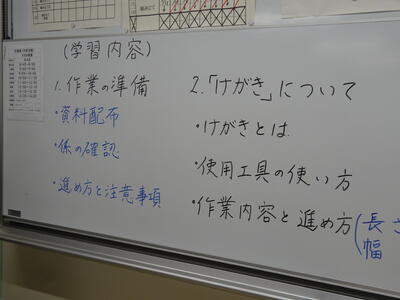 (学習内容)
1.作業の準備
・資料配布
・係の確認
・進め方と注意事項
2.「けがき」について
・けがきとは
・使用工具の使い方
・作業内容と進め方(長さ
幅